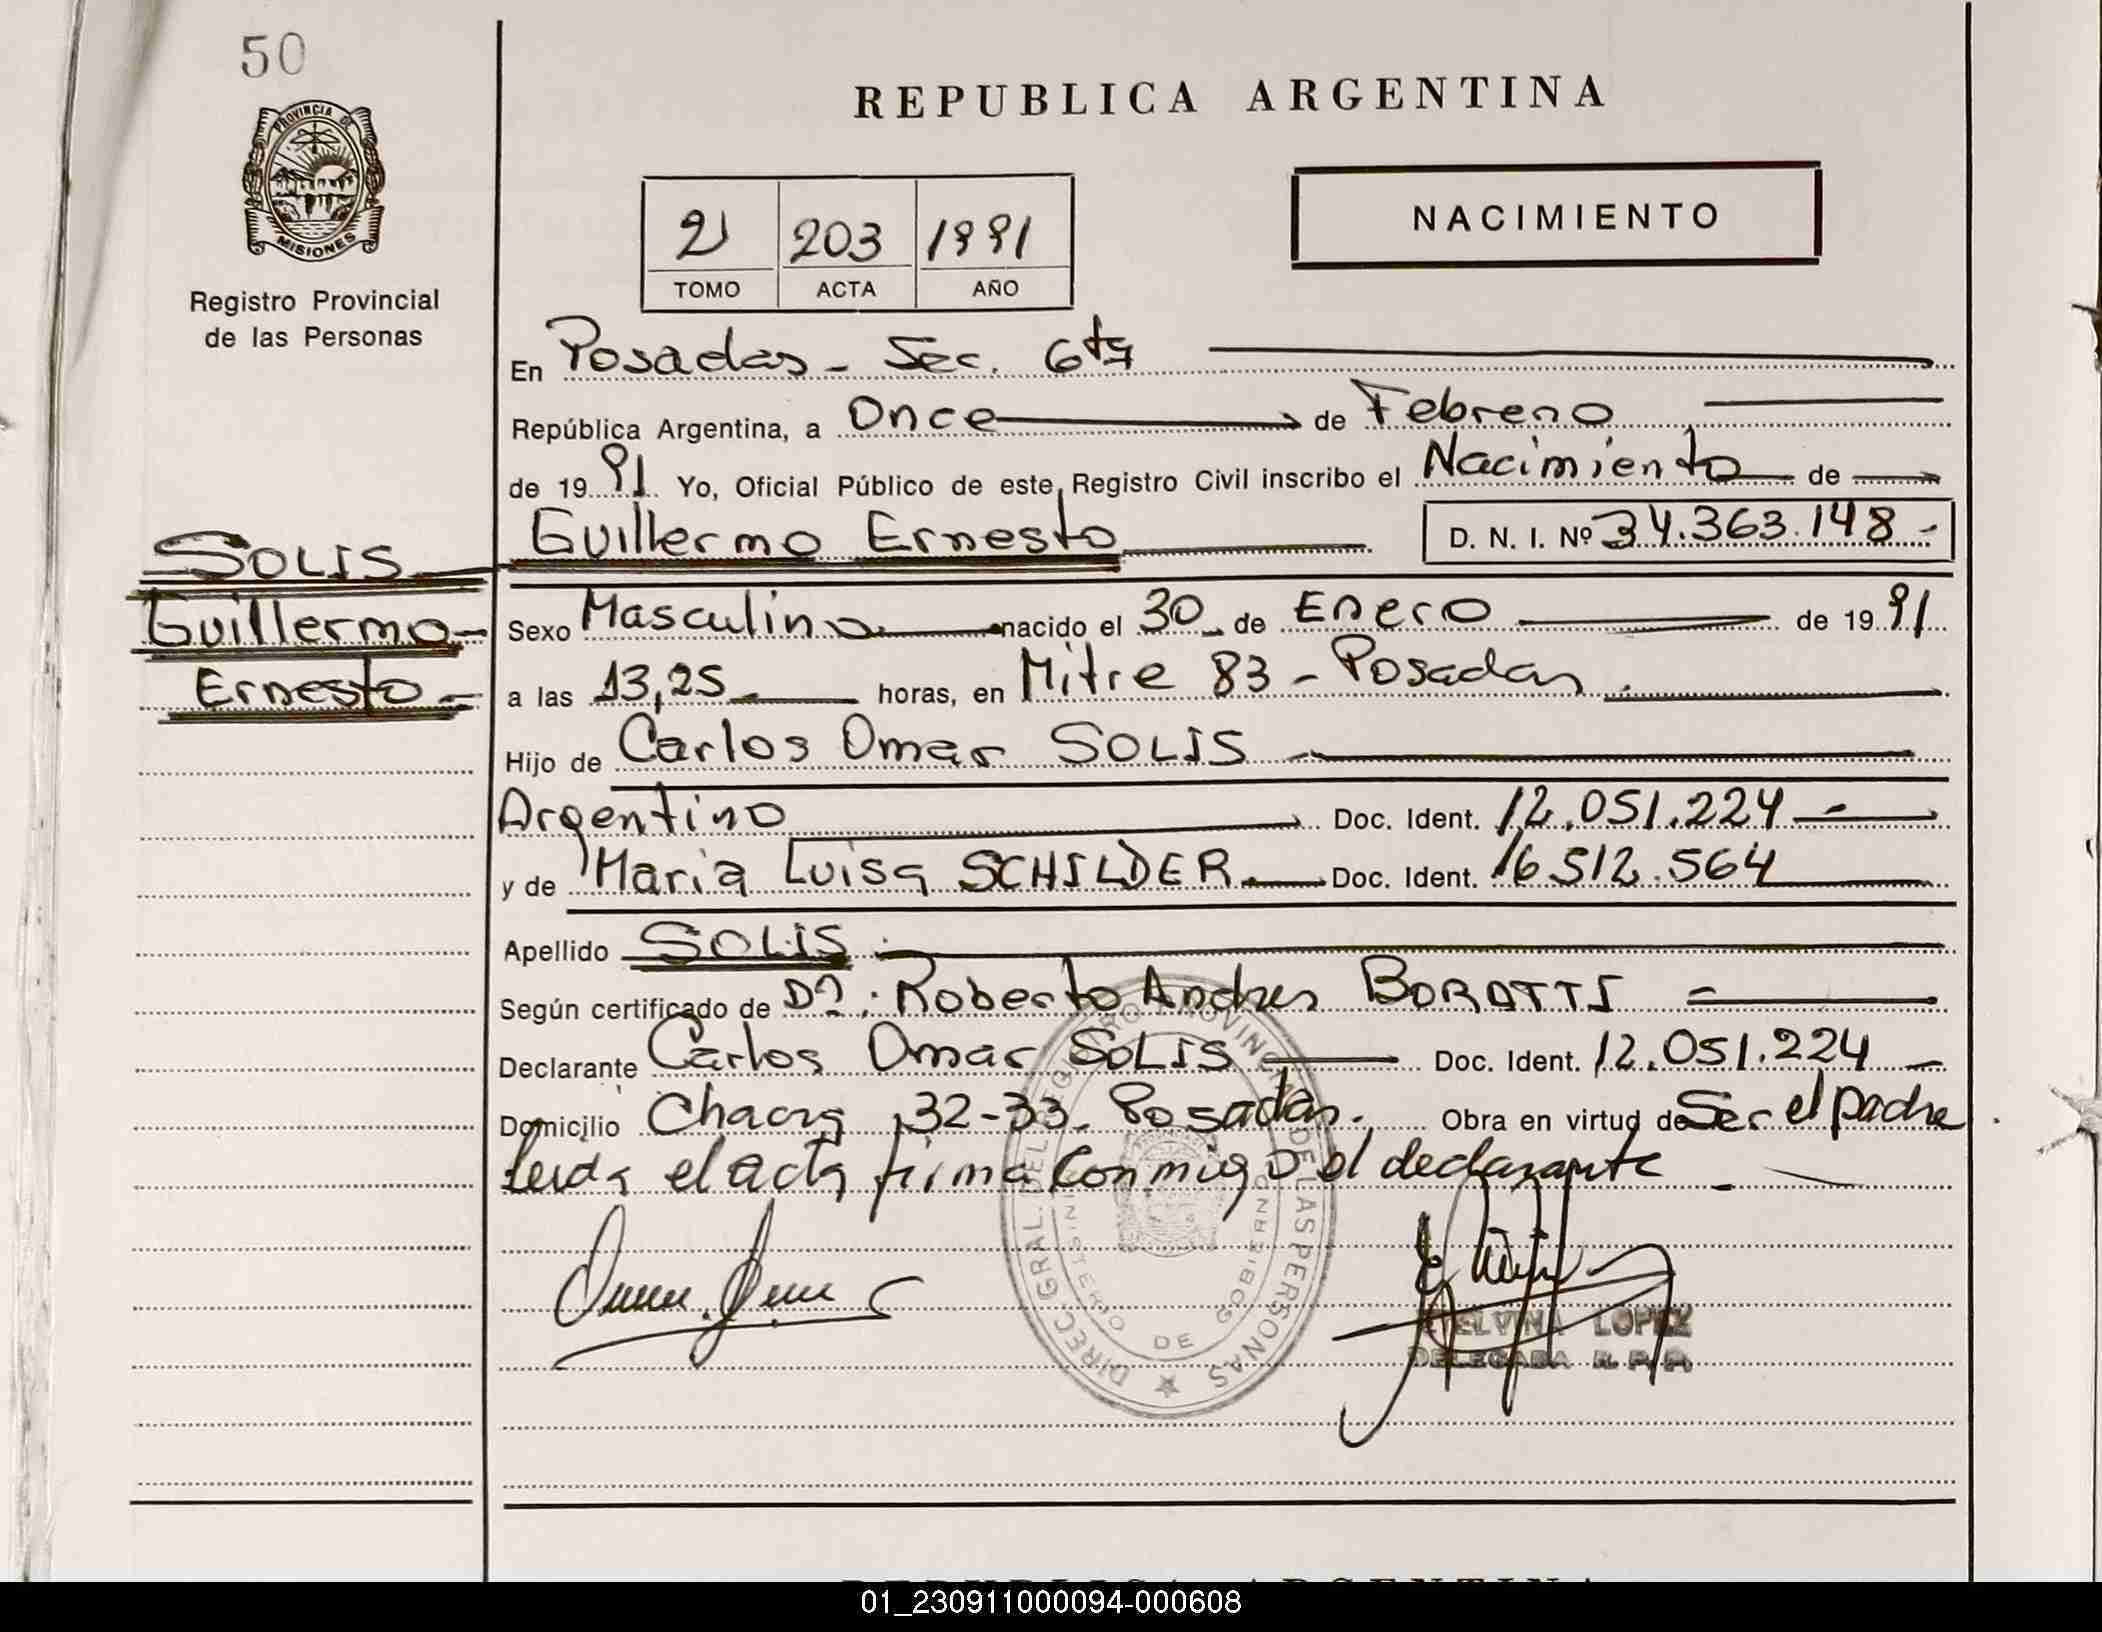 50
PROVINCIA DE
MISIONES
Registro Provincial
de las Personas
REPUBLICA ARGENTINA
2 203 1991
TOMO ACTA AÑO
NACIMIENTO
En Posadas - Sec. 6ta
República Argentina, a Once de Febrero
de 19 91 Yo, Oficial Público de este Registro Civil inscribo el Nacimiento de
Guillermo Ernesto D. N. I. Nº 34.363.148 -
SOLIS
Guillermo
Ernesto
Sexo Masculino nacido el 30 de Enero de 19 91
a las 13,25 horas, en Mitre 83 - Posadas
Hijo de Carlos Omar SOLIS
Argentino Doc. Ident. 12.051.224
y de Maria Luisa SCHILDER Doc. Ident. 16.512.564
Apellido SOLIS
Según certificado de Dr. Roberto Andres BORATTI
Declarante Carlos Omar SOLIS Doc. Ident. 12.051.224
Domicilio Chacra 32-33 - Posadas. Obra en virtud de Ser el padre.
Leida el acta firma conmigo el declarante
DIREC. GRAL. DEL REGISTRO PROVINCIAL DE LAS PERSONAS
MINISTERIO DE GOBIERNO
ELVINA LOPEZ
DELEGADA R. P. P.
01_230911000094-000608